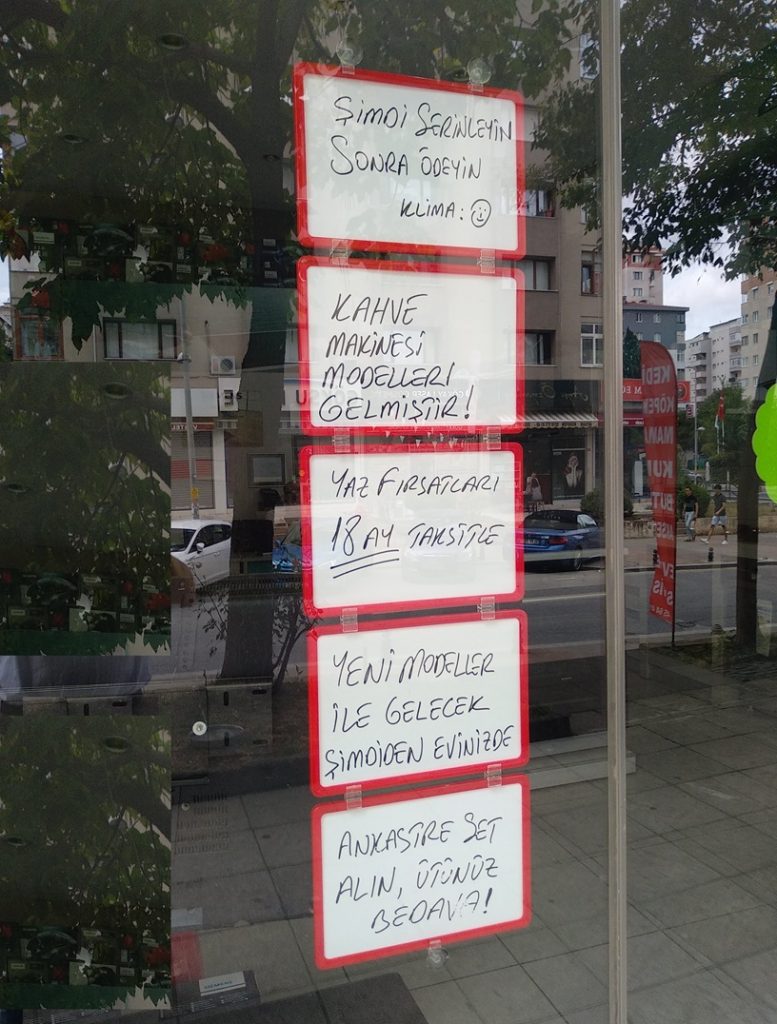 ŞİMDİ SERİNLEYİN
SONRA ÖDEYİN
KLİMA: ☺
KAHVE
MAKİNESİ
MODELLERİ
GELMİŞTİR!
YAZ FIRSATLARI
18 AY TAKSİTLE
YENİ MODELLER
İLE GELECEK
ŞİMDİDEN EVİNİZDE
ANKASTRE SET
ALIN, ÜTÜNÜZ
BEDAVA!
KEDİ
KÖPEK
MAMA
SIEMENS